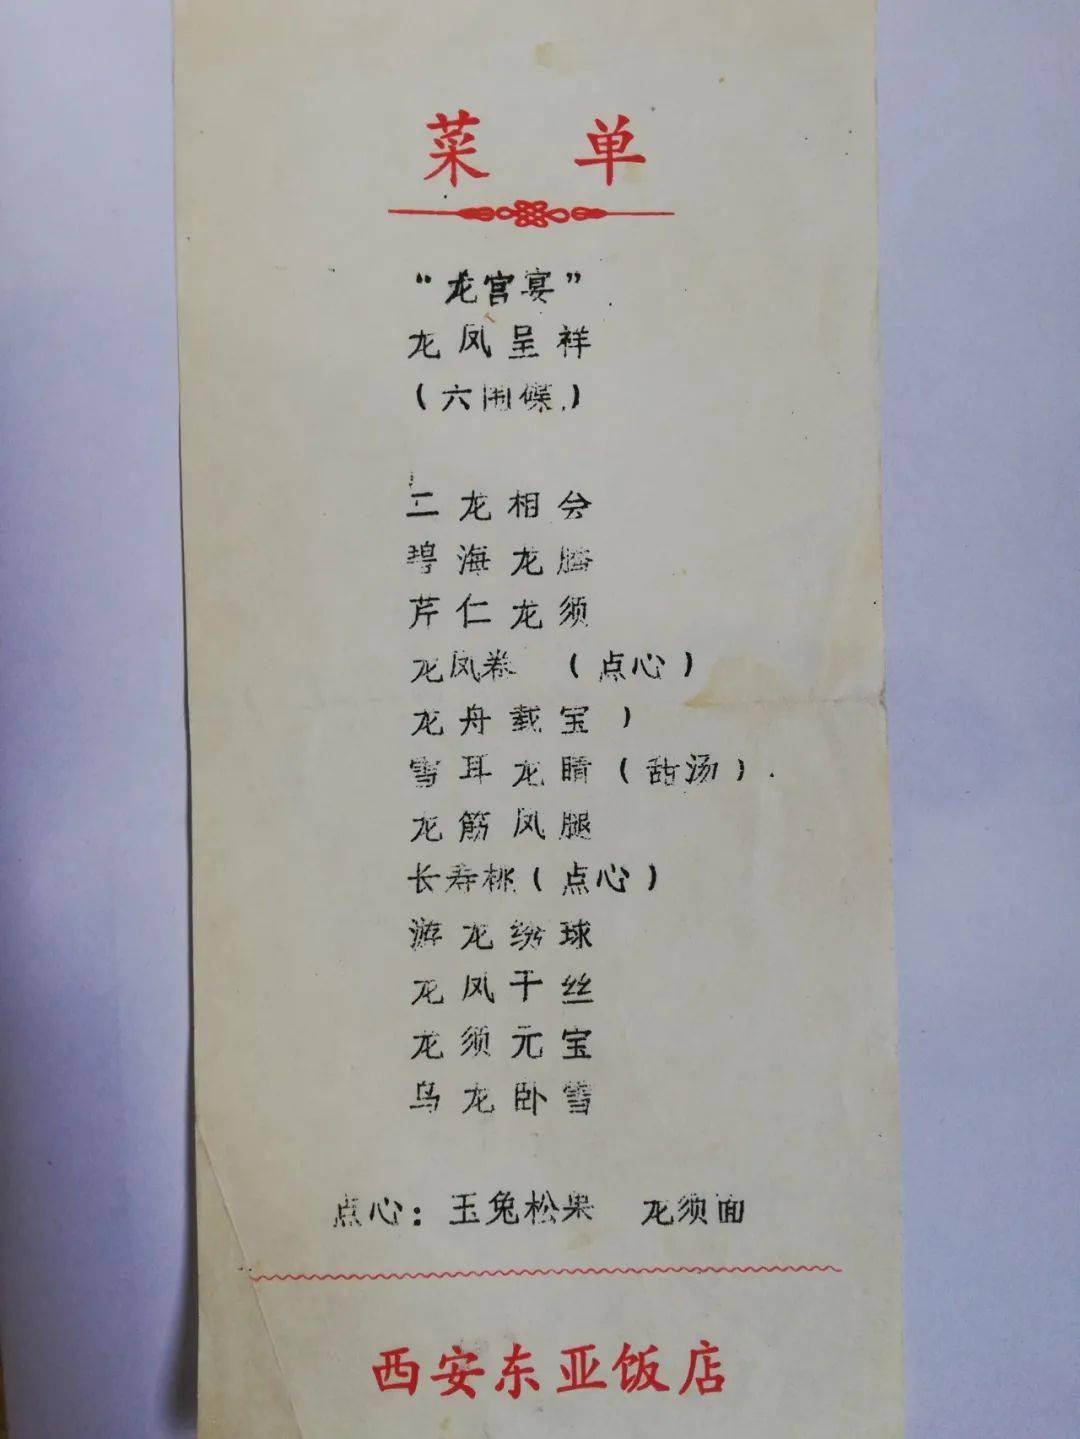 菜单
“龙宫宴”
龙凤呈祥
(六围碟)
二龙相会
碧海龙腾
芹仁龙须
龙凤卷 (点心)
龙舟载宝)
雪耳龙睛(甜汤).
龙筋凤腿
长寿桃(点心)
游龙绣球
龙凤干丝
龙须元宝
乌龙卧雪
点心:玉兔松果 龙须面
西安东亚饭店